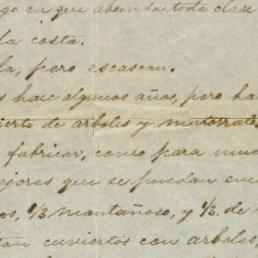 go en que abunda toda clase
la costa.
la, pero escasean.
s haic algunos años, pero ha
ierto de arboles y matorrale
fabricar, como para mue
ejores que se puedan enc
os, 1/3 mantañoso, y 1/3. de
tan cuviertos con arboles,